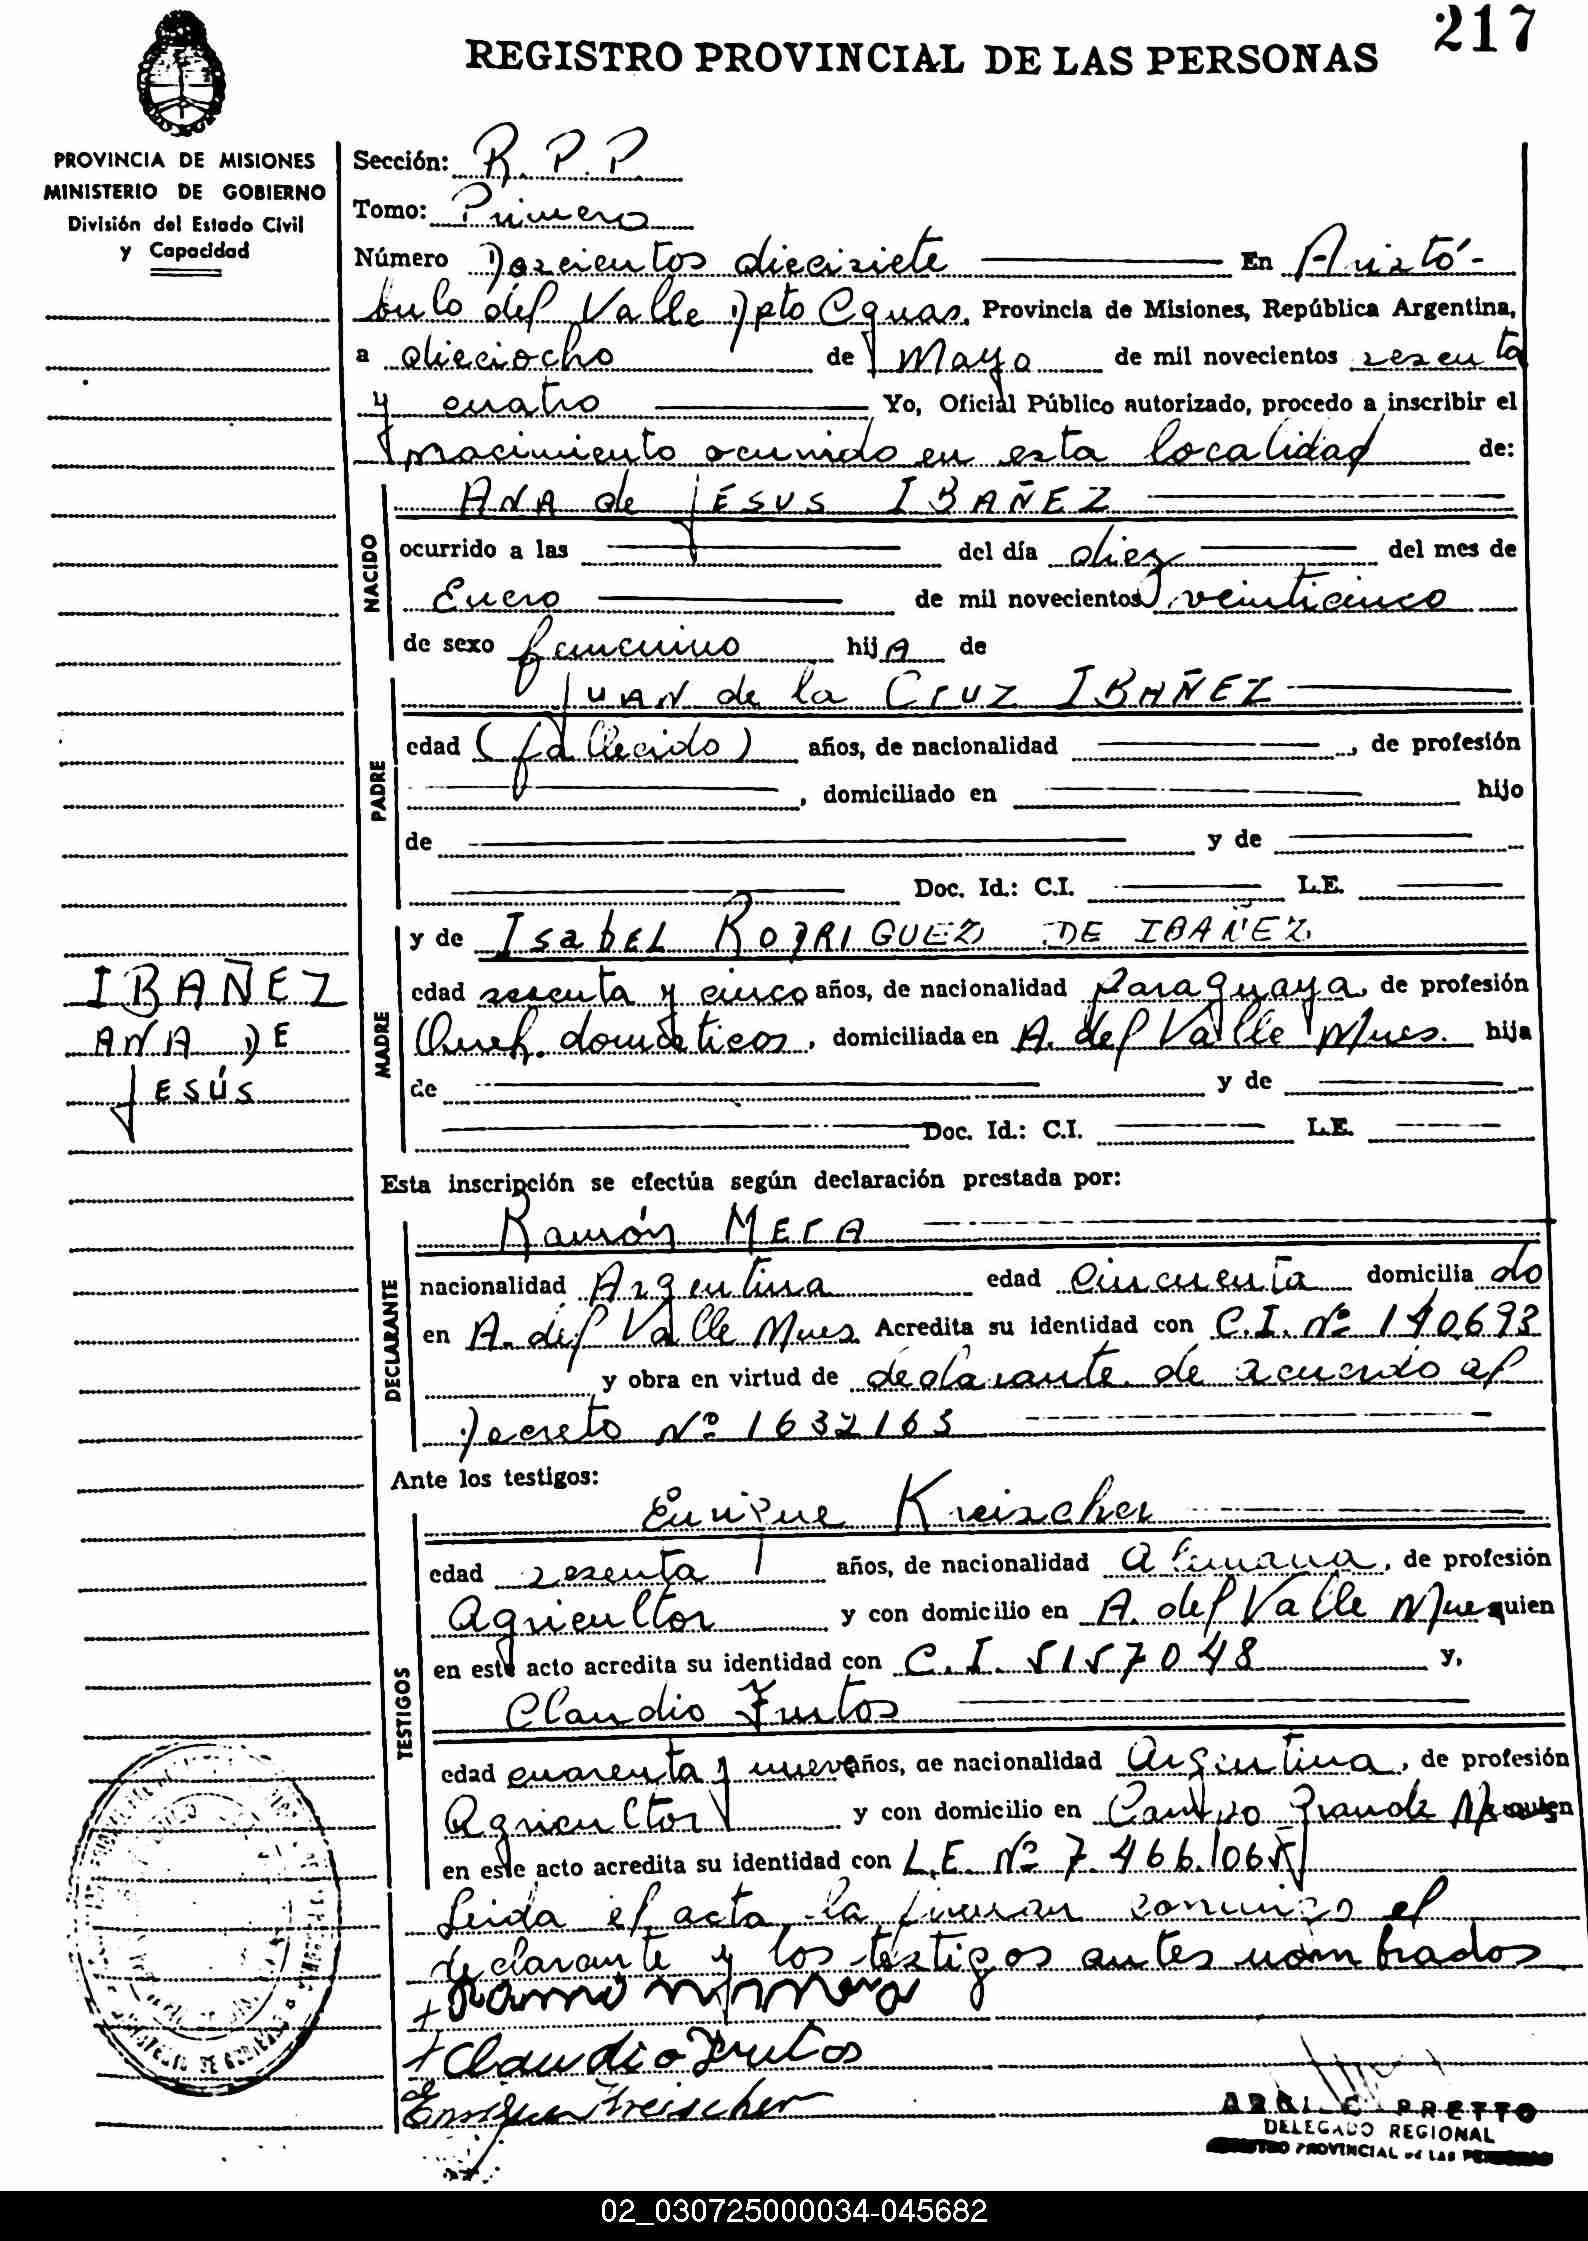 217
REGISTRO PROVINCIAL DE LAS PERSONAS
PROVINCIA DE MISIONES
MINISTERIO DE GOBIERNO
División del Estado Civil
y Capacidad
Sección: R.P.P.
Tomo: Primero
Número Doscientos diecisiete En Aristó-
bulo del Valle Dpto Cguas. Provincia de Misiones, República Argentina,
a dieciocho de Mayo de mil novecientos sesenta
y cuatro Yo, Oficial Público autorizado, procedo a inscribir el
nacimiento ocurrido en esta localidad de:
NACIDO
ANA de JESUS IBAÑEZ
ocurrido a las del día diez del mes de
Enero de mil novecientos veinticinco
de sexo femenino hijA de
PADRE
JUAN de la CRUZ IBAÑEZ
edad (fallecido) años, de nacionalidad , de profesión
, domiciliado en hijo
de y de
Doc. Id.: C.I. L.E.
MADRE
y de ISabEL RODRIGUEZ DE IBAÑEZ
edad sesenta y cinco años, de nacionalidad paraguaya, de profesión
Queh. domésticos, domiciliada en A. del Valle Mnes. hija
de y de
Doc. Id.: C.I. L.E.
IBAÑEZ
ANA DE
JESÚS
Esta inscripción se efectúa según declaración prestada por:
DECLARANTE
Ramón MErA
nacionalidad Argentina edad cincuenta domiciliado
en A. del Valle Mnes Acredita su identidad con C.I. Nº 140.693
y obra en virtud de declarante de acuerdo al
Decreto Nº 1632/63
Ante los testigos:
TESTIGOS
Enrique Kreischer
edad sesenta años, de nacionalidad Alemana, de profesión
Agricultor y con domicilio en A. del Valle Mnes quien
en este acto acredita su identidad con C.I. 5157048 y,
Claudio Frutos
edad cuarenta y nueve años, de nacionalidad Argentina, de profesión
Agricultor y con domicilio en Campo Grande quien
en este acto acredita su identidad con L.E. Nº 7.466.106
Leida el acta la firman conmigo el
declarante y los testigos antes nombrados
+ Claudio Frutos
Enrique Kreischer
PRETTO
DELEGADO REGIONAL
PROVINCIAL DE LAS
02_030725000034-045682